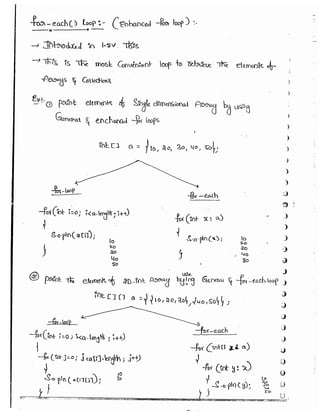 for-each() loop :- (Enhanced for loop) :-
→ Introduced in 1.5v This
→ This is the most Convenient loop to Retrieve The elements of
Arrays & Collections
Ex1: ① print elements of Single dimensional Array by using
General & enchanced for loops
int [ ] a = {10, 20, 30, 40, 50};
for-loop
for-each
for(int i=0; i<a.length; i++)
{
S.o.pln(a[i]);
}
10
20
30
40
50
for(int x : a)
{
S.o.pln(x);
}
10
20
30
40
50
② print the elements of 2D-int Array by using General & for-each loop
int [ ] [ ] a = {{10, 20, 30}, {40, 50}};
for-loop
for-each
for(int i=0; i<a.length; i++)
{
for(int j=0; j<a[i].length; j++)
{
S.o.pln(a[i][j]);
} }
for(int[ ] x : a)
{
for(int y : x)
{
S.o.pln(y);
} }